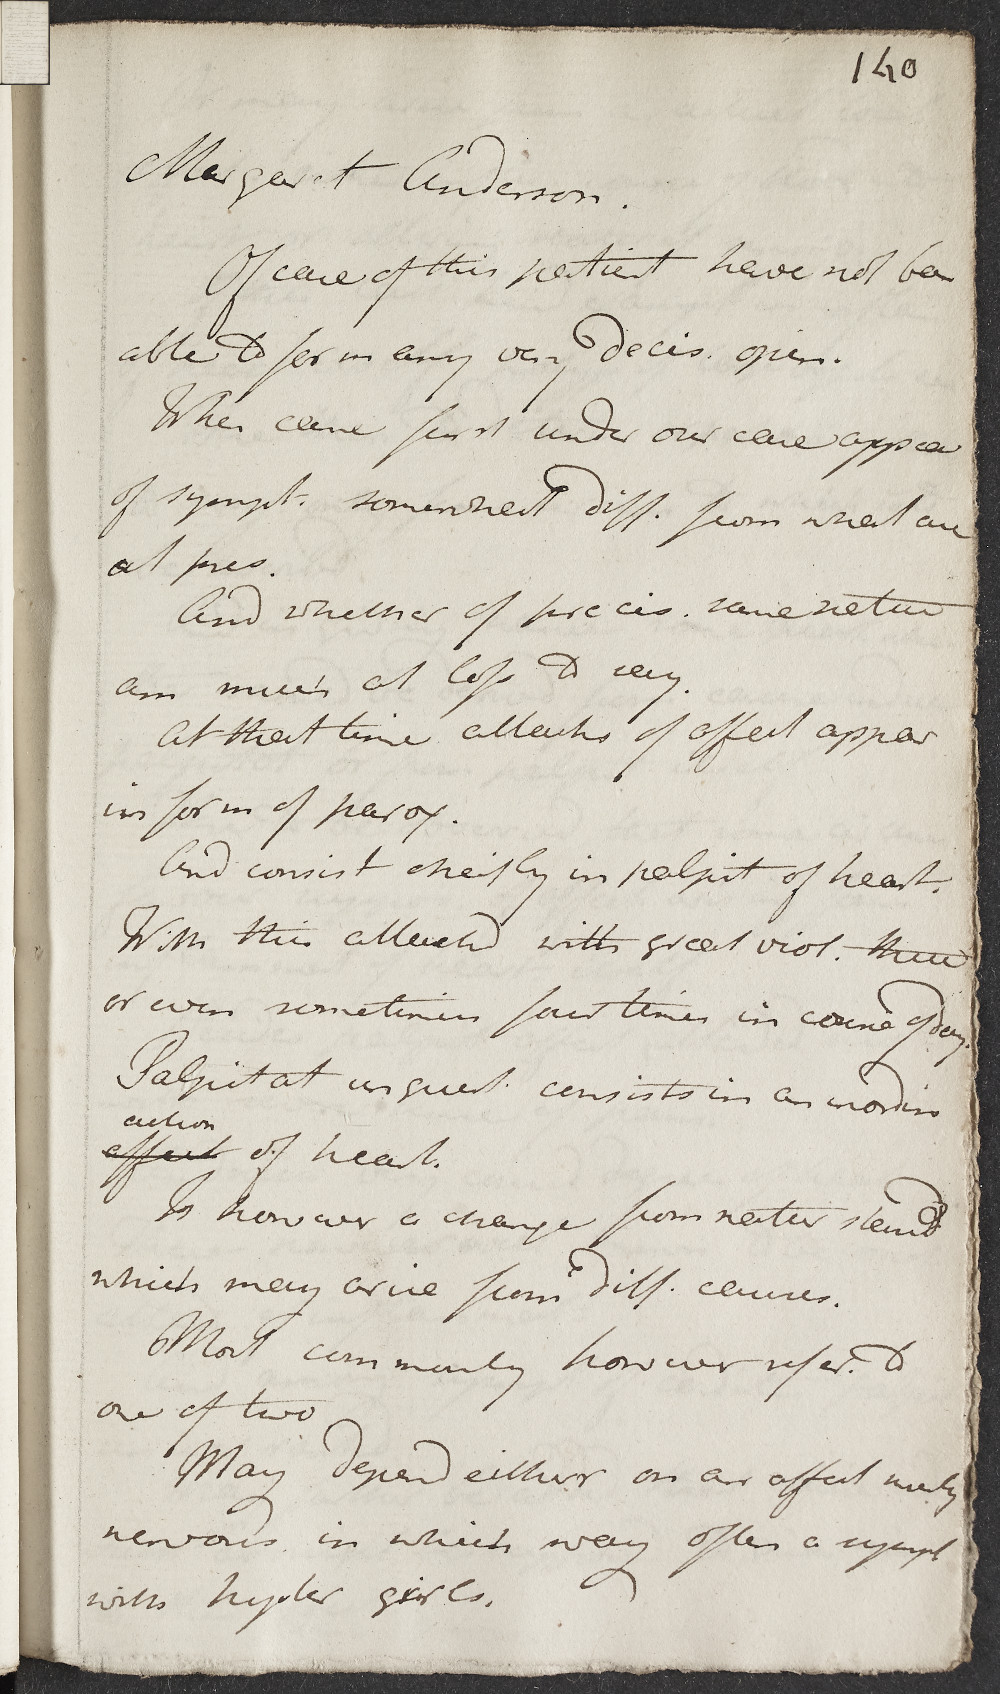 140
Margaret Anderson.
Of case of this patient have not been
able to form any very decis. opin.
When came first under our care appear
of sympt. somewhat diff. from what are
at pres.
And whether of precis. same nature
am much at loss to say.
At that time attacks of affect appear
in form of parox.
And consist cheifly in palpit of heart.
With this attacked with great viol. three
or even sometimes four times in course of day.
Palpitat unquest. consists in an inordin
action
affect of heart.
Is however a change from natur stand
which may arise from diff. causes.
Most commonly however refer. to
one of two
May depend either on an affect merely
nervous in which way often a sympt
with hyster girls.